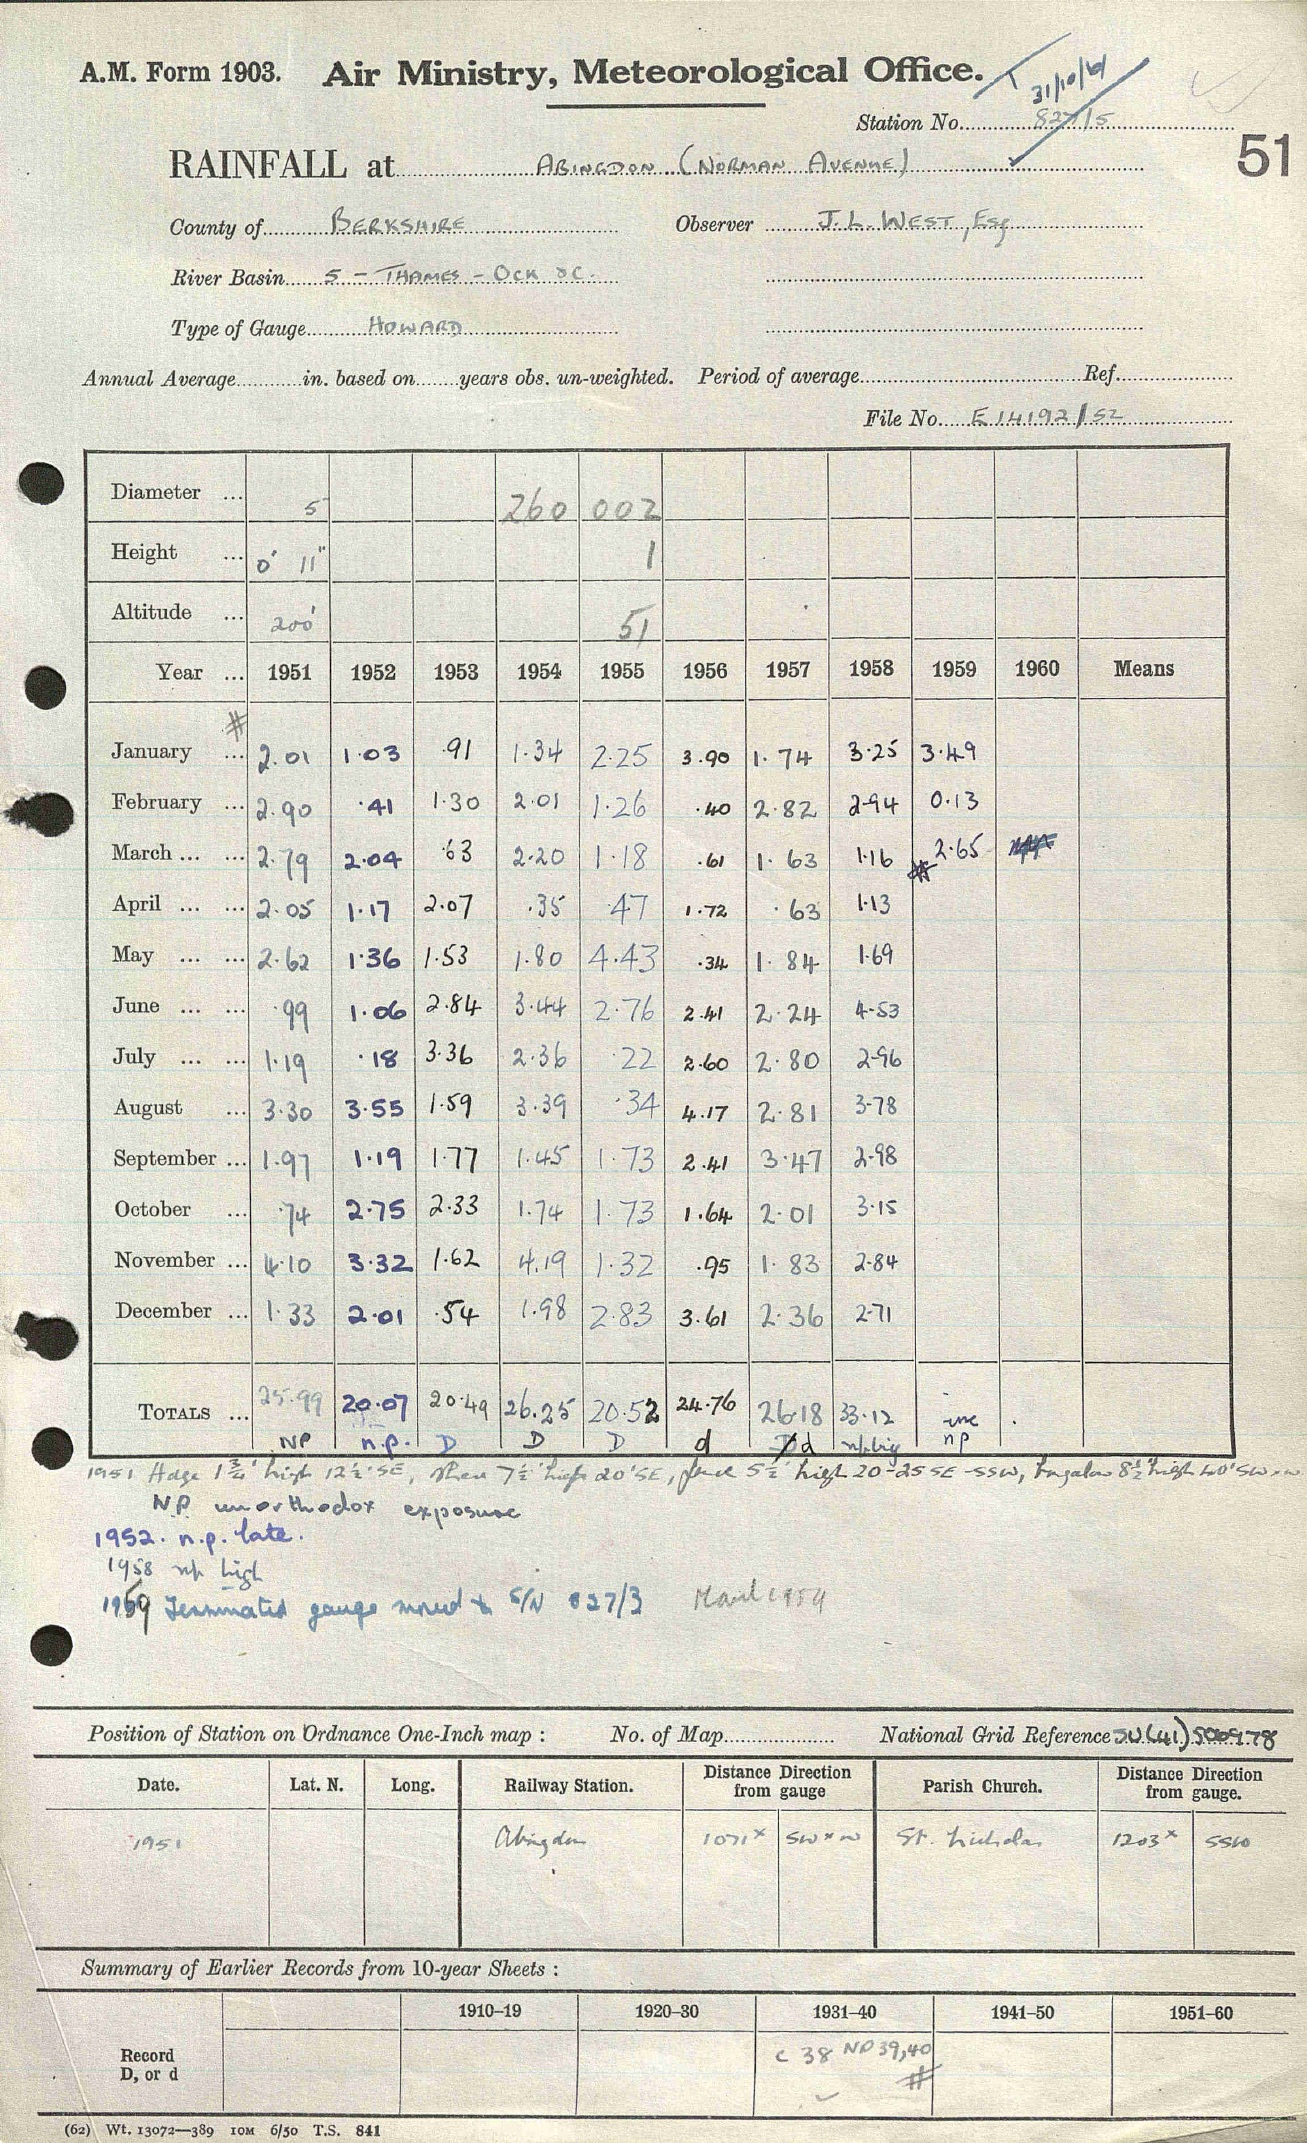 A.M. Form 1903. Air Ministry, Meteorological Office.
31/10/61
Station No. 827/5
RAINFALL at ABINGDON (NORMAN AVENUE)
51
County of BERKSHIRE Observer J. L. WEST, Esq
River Basin 5 - THAMES - OCK &C.
Type of Gauge HOWARD
Annual Average in. based on years obs. un-weighted. Period of average Ref.
File No. E14192/52
Diameter ... 5 260 002
Height ... 0' 11" 1
Altitude ... 200' 51
Year ... 1951 1952 1953 1954 1955 1956 1957 1958 1959 1960 Means
January ... 2.01 1.03 .91 1.34 2.25 3.90 1.74 3.25 3.49
February ... 2.90 .41 1.30 2.01 1.26 .40 2.82 2.94 0.13
March ... ... 2.79 2.04 .63 2.20 1.18 .61 1.63 1.16 2.65
April ... ... 2.05 1.17 2.07 .35 .47 1.72 .63 1.13
May ... ... 2.62 1.36 1.53 1.80 4.43 .34 1.84 1.69
June ... ... .99 1.06 2.84 3.44 2.76 2.41 2.24 4.53
July ... ... 1.19 .18 3.36 2.36 .22 2.60 2.80 2.96
August ... 3.30 3.55 1.59 3.39 .34 4.17 2.81 3.78
September ... 1.97 1.19 1.77 1.45 1.73 2.41 3.47 2.98
October ... .74 2.75 2.33 1.74 1.73 1.64 2.01 3.15
November ... 4.10 3.32 1.62 4.19 1.32 .95 1.83 2.84
December ... 1.33 2.01 .54 1.98 2.83 3.61 2.36 2.71
TOTALS ... 25.99 20.07 20.49 26.25 20.52 24.76 26.18 33.12 inc
NP n.p. D D D d d np big np
1951 Hedge 1¾' high 12½' SE, 7½' high 20' SE, fence 5½' high 20-25 SE-SSW, bungalow 8½' high 40' SW x W
N.P. unorthodox exposure
1952. n.p. late.
1958 np high
1959 Terminated gauge moved to S/N 827/3 March 1959
Position of Station on Ordnance One-Inch map : No. of Map National Grid Reference SU(41) 500978
Date. Lat. N. Long. Railway Station. Distance Direction from gauge Parish Church. Distance Direction from gauge.
1951 Abingdon 1071x SW x W St. Nicholas 1203x SSW
Summary of Earlier Records from 10-year Sheets :
1910–19 1920–30 1931–40 1941–50 1951–60
Record D, or d c 38 NP 39,40
(62) Wt. 13072—389 10M 6/50 T.S. 841